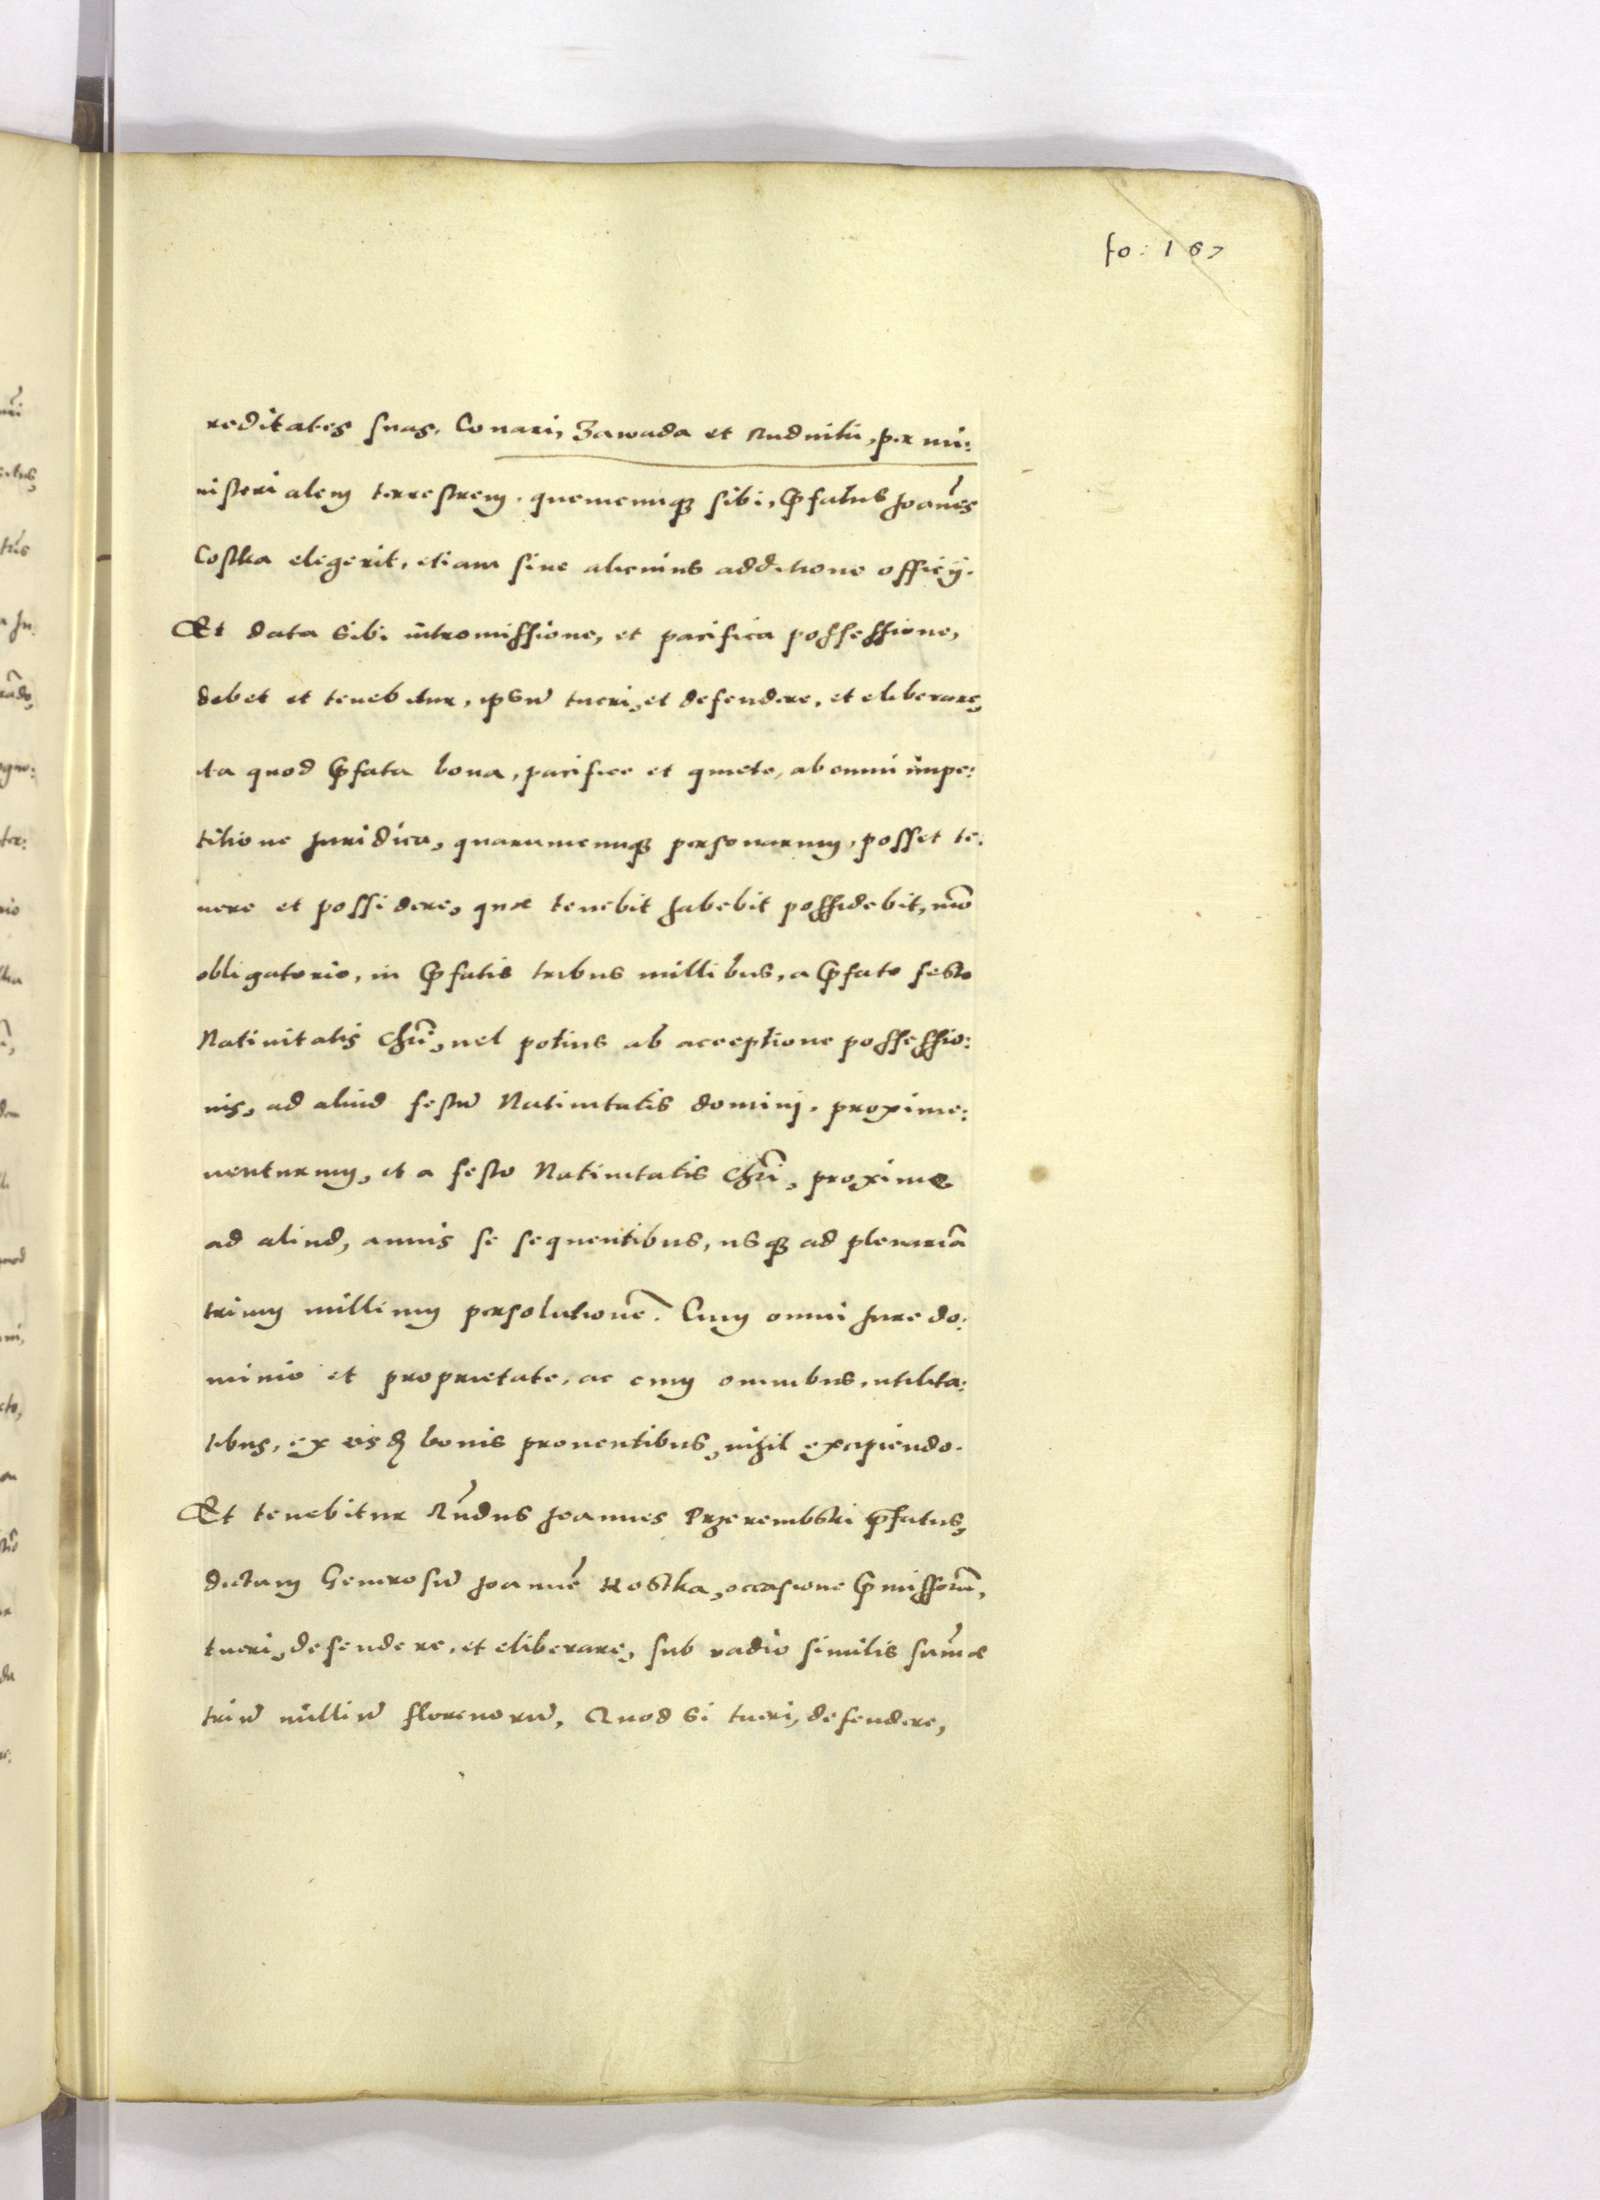 fo: 167
reditates suas, Conari, Zawada et Rudniki, per mi:
nisterialem terrestrem, quemcunq3 sibi, p̄fatus Joañes
Costka elegerit, etiam sine alicuius additione officij.
Et data sibi intromissione, et pacifica possessione,
debet et tenebitur, ipsū tueri, et defendere, et eliberare,
ita quod p̄fata bona, pacifice et quiete, ab omni impe:
titione Juridica, quarumcunq3 personarum, posset te:
nere et possidere, quæ tenebit habebit possidebit, mō
obligatorio, in p̄fatis tribus millibus, a p̄fato festo
Natiuitatis Chri̅, uel potius ab acceptione possessio:
nis, ad aliud festū Natiuitatis dominj, proxime:
uenturum, et a festo Natiuitatis Chri̅, proxime
ad aliud, annis se sequentibus, usq3 ad plenariā
trium millium persolutionē. Cum omni Jure do:
minio et proprietate, ac cum omnibus, utilita:
tibus, ex eisd̄ bonis prouentibus, nihil excipiendo.
Et tenebitur Rñdus Joannes Przerembski p̄fatus,
dictum Generosū Joannē Kostka, occasione p̄missorū,
tueri, defendere, et eliberare, sub vadio similis sum̄æ
triū milliū florenorū, Quod si tueri, defendere,